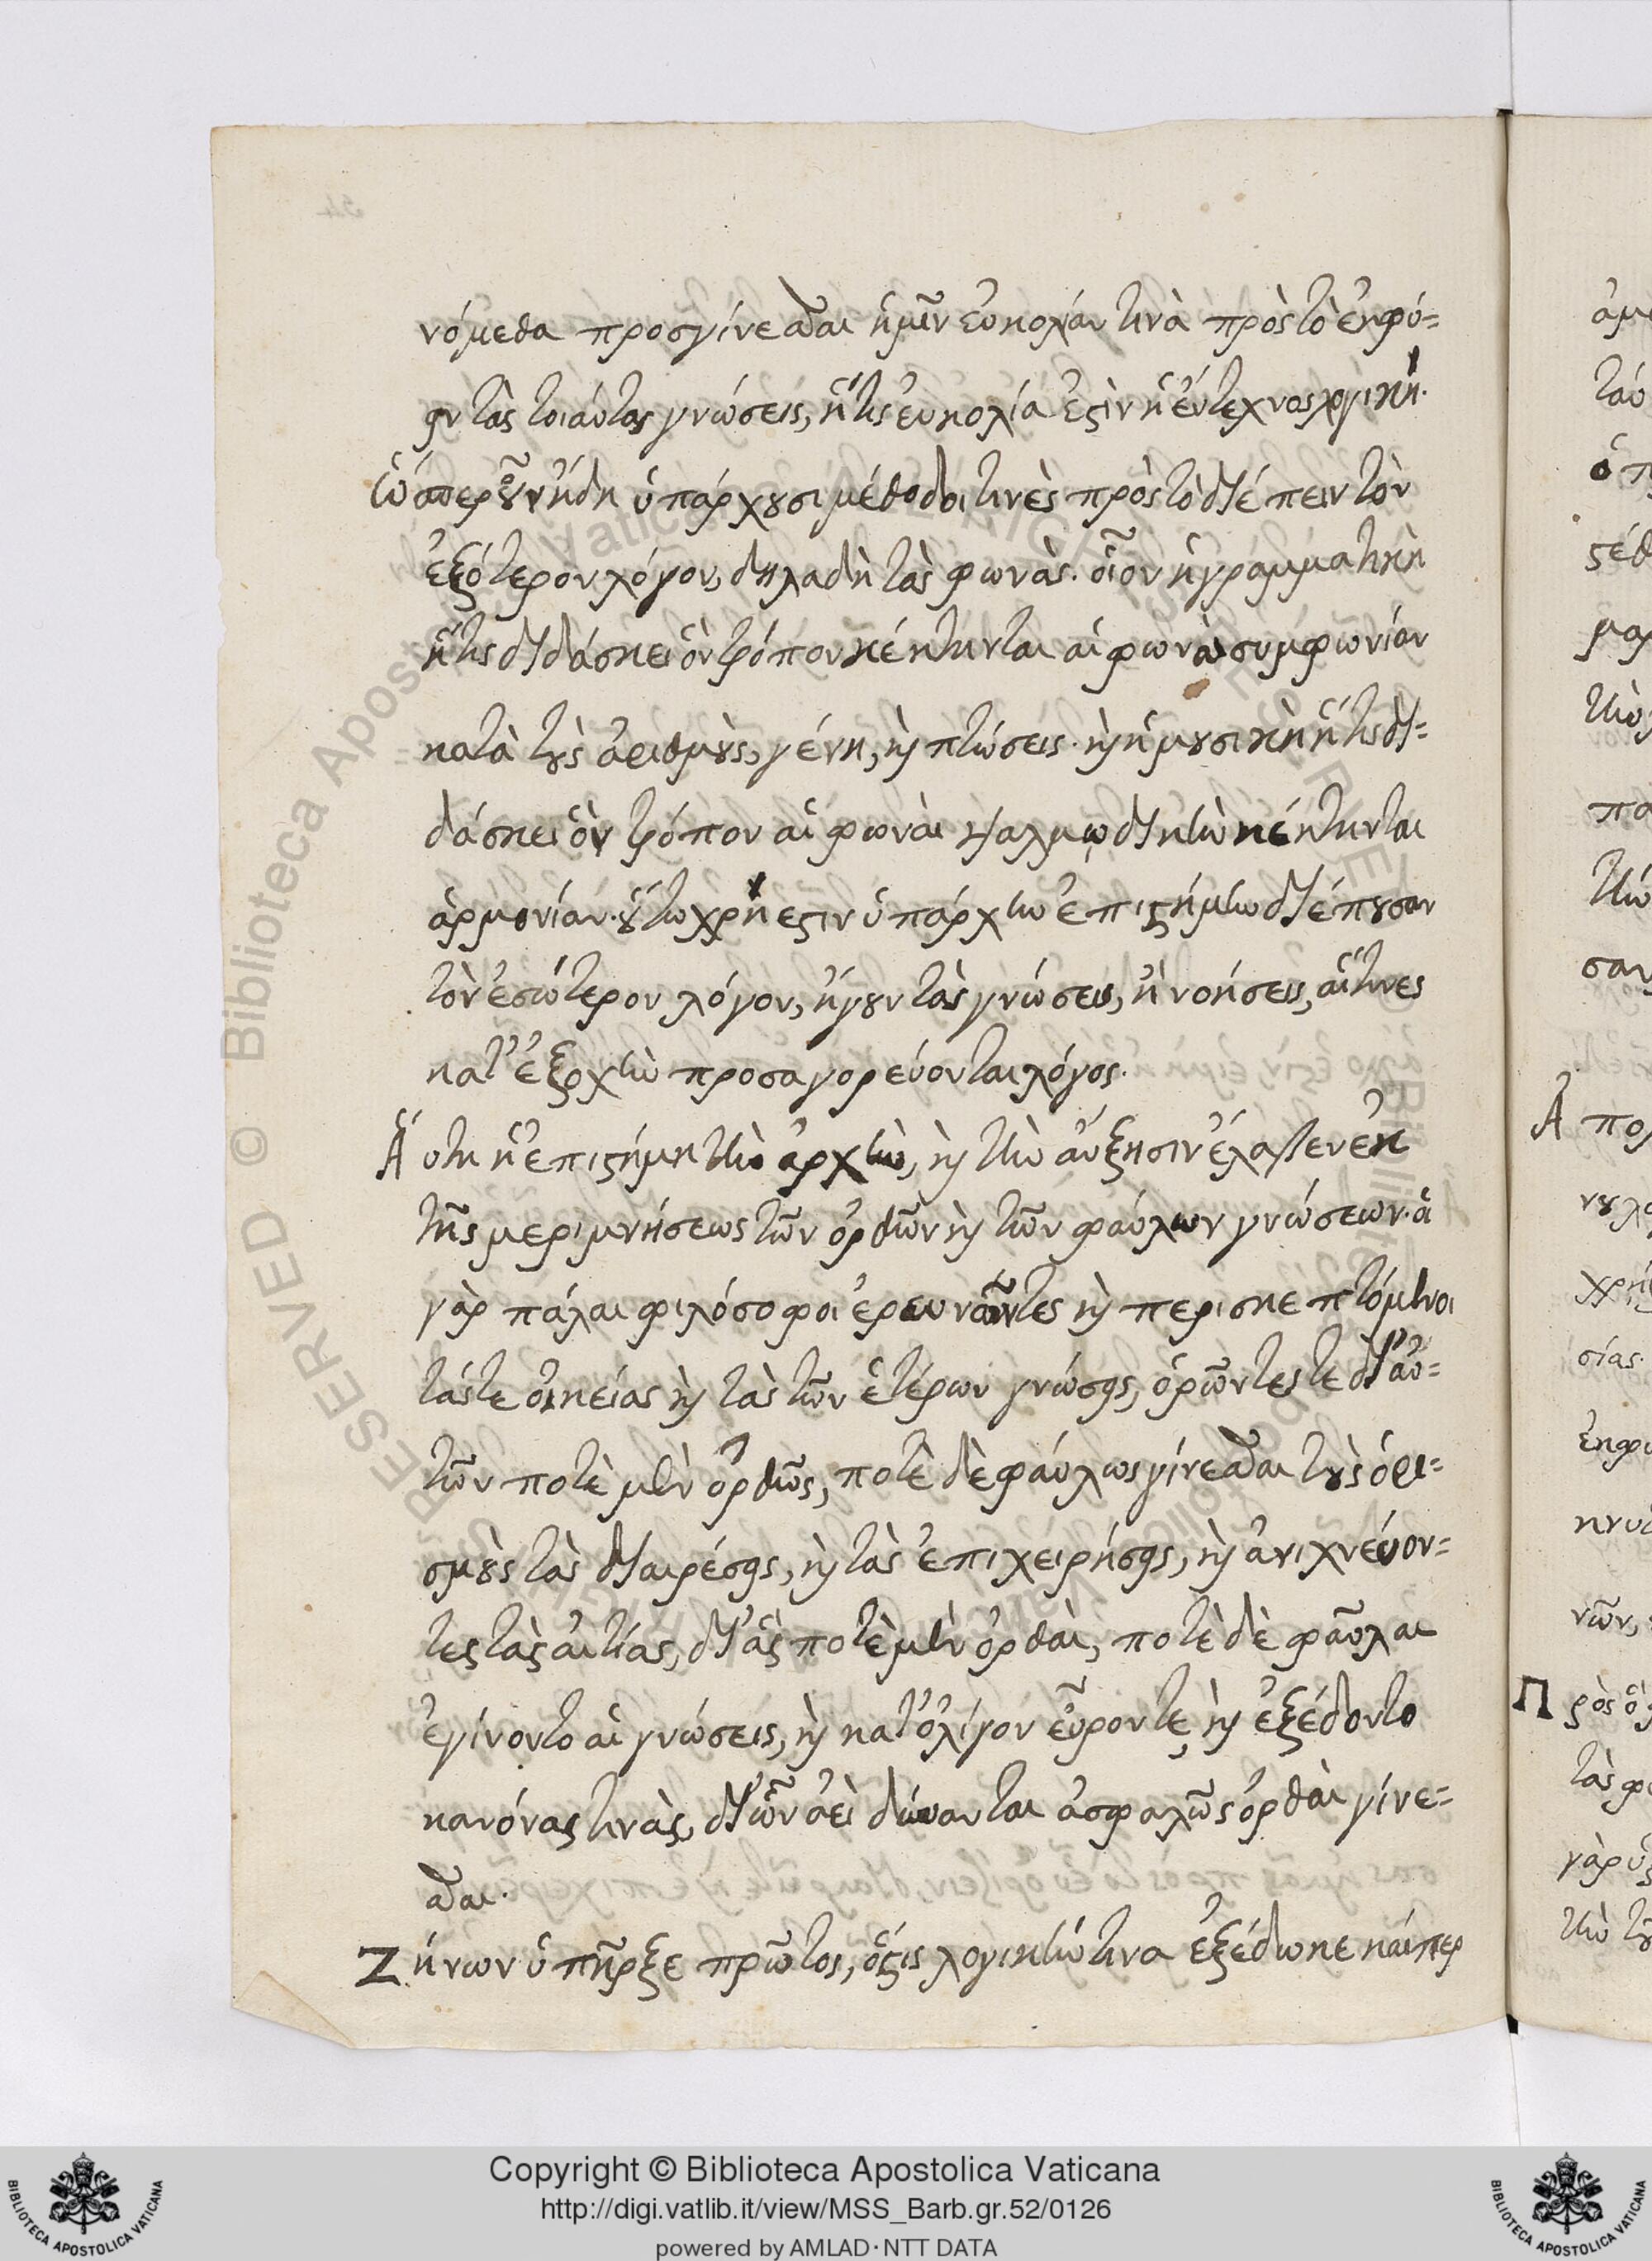 νόμεθα προσγίνεσθαι ἡμῖν εὐκολίαν τινὰ πρὸς τὸ ἐκφύ=
γειν τὰς τοιαύτας γνώσεις, ἥτις εὐκολία ἐστὶν ἡ ἔντεχνος λογική.
Ὥσπερ οὖν ἤδη ὑπάρχουσι μέθοδοί τινὲς πρὸς τὸ διέπειν τὸν
ἐξότερον λόγον, δηλαδὴ τὰς φωνάς. οἷον ἡ γραμματικὴ
ἥτις διδάσκει ὃν τρόπον κέκτηνται αἱ φωναὶ συμφωνίαν
κατὰ τοὺς ἀριθμοὺς, γένη, καὶ πτώσεις. καὶ ἡ μουσικὴ ἥτις δι=
δάσκει ὃν τρόπον αἱ φωναὶ ψαλμῳδικὴν κέκτηνται
ἁρμονίαν. οὕτω χρή ἐστιν ὑπάρχειν ἐπιστήμην διέπουσαν
τὸν ἐσώτερον λόγον, ἤγουν τὰς γνώσεις, ἢ νοήσεις, αἵτινες
κατ' ἐξοχὴν προσαγορεύονται λόγος.
Ἅυτη ἡ ἐπιστήμη τὴν ἀρχὴν, καὶ τὴν ἄυξησιν ἔλαβεν ἐκ
τῆς μεριμνήσεως τῶν ὀρθῶν καὶ τῶν φαύλων γνώσεων. ἁ
γὰρ πάλαι φιλόσοφοι ἐρευνῶντες καὶ περισκεπτόμενοι
τάς τε οἰκείας καὶ τὰς τῶν ἑτέρων γνώσεις, ὁρῶντες τε δι' αὐ=
τῶν ποτὲ μὲν ὀρθῶς, ποτὲ δὲ φαύλως γίνεσθαι τοὺς ὁρι=
σμοὺς τὰς διαιρέσεις, καὶ τὰς ἐπιχειρήσεις, καὶ ἀνιχνεύον=
τες τὰς αἰτίας, δι' ἃς ποτὲ μὲν ὀρθαὶ, ποτὲ δὲ φαῦλαι
ἐγίνοντο αἱ γνώσεις, καὶ κατ' ὀλίγον εὗρον τε, καὶ ἐξέδοντο
κανόνας τινὰς, δι' ὧν ἀεὶ δύνανται ἀσφαλῶς ὀρθαὶ γίνε=
σθαι.
Ζήνων ὑπῆρξε πρῶτος, ὅστις λογικήν τινα ἐξέδωκε καίπερ
Copyright © Biblioteca Apostolica Vaticana
http://digi.vatlib.it/view/MSS_Barb.gr.52/0126
powered by AMLAD·NTT DATA
BIBLIOTECA APOSTOLICA VATICANA
BIBLIOTECA APOSTOLICA VATICANA